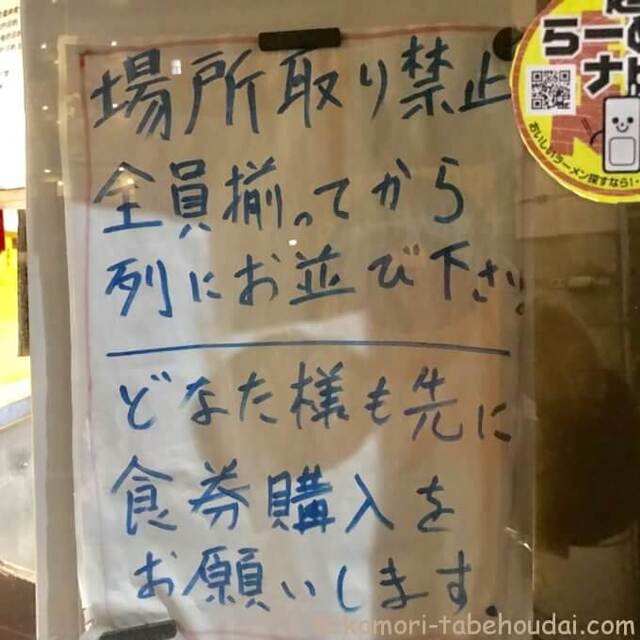 場所取り禁止
全員揃ってから
列にお並び下さい。
どなた様も先に
食券購入を
お願いします。
らーめ
ナビ
おいしいラーメン探すなら!
komori-tabehoudai.com